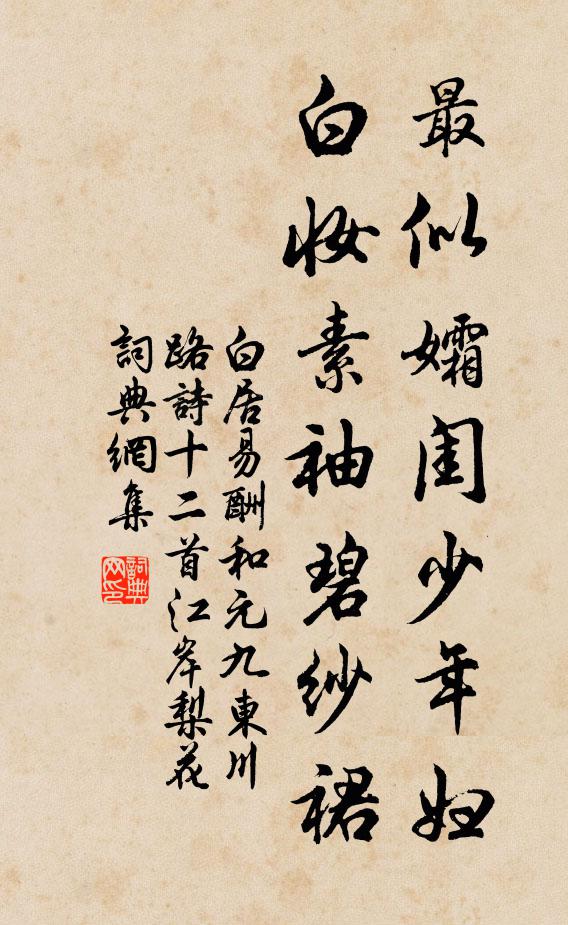 最似孀閨少年妇
白妆素袖碧纱裙
白居易酬和元九東川
路詩十二首江岸梨花
詞典網集
詞典
网印